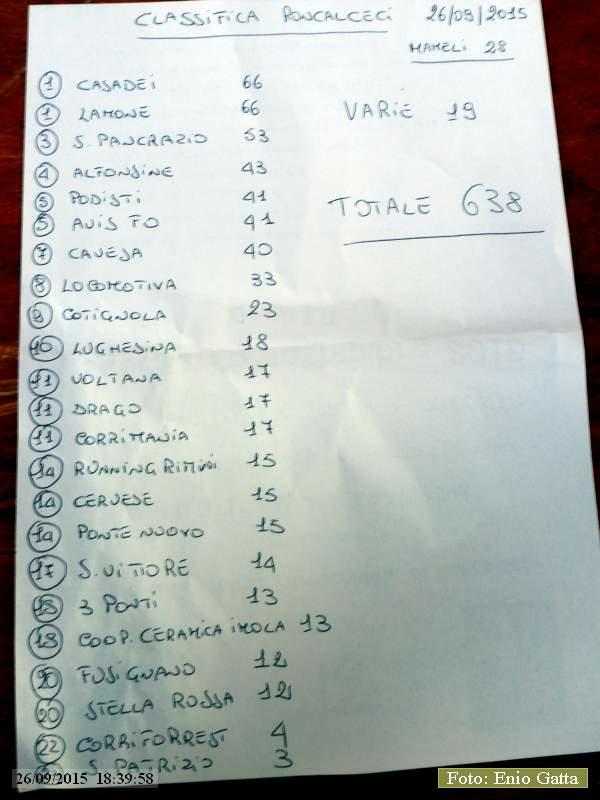 CLASSIFICA PONCALCECI 26/09/2015
MAMELI 28
1 CASADEI 66
1 LAMONE 66
VARIE 19
3 S. PANCRAZIO 53
4 ALFONSINE 43
5 PODISTI 41
5 AVIS FO 41
TOTALE 638
7 CAVEJA 40
8 LOCOMOTIVA 33
9 COTIGNOLA 23
10 LUGHESINA 18
11 VOLTANA 17
11 DRAGO 17
11 CORRIMANIA 17
14 RUNNING RIMINI 15
14 CERVESE 15
14 PONTE NUOVO 15
17 S. VITTORE 14
18 3 PONTI 13
18 COOP. CERAMICA IMOLA 13
20 FUSIGNANO 12
20 STELLA ROSSA 12
22 CORRIFORREST 4
S. PATRIZIO 3
26/09/2015 18:39:58
Foto: Enio Gatta